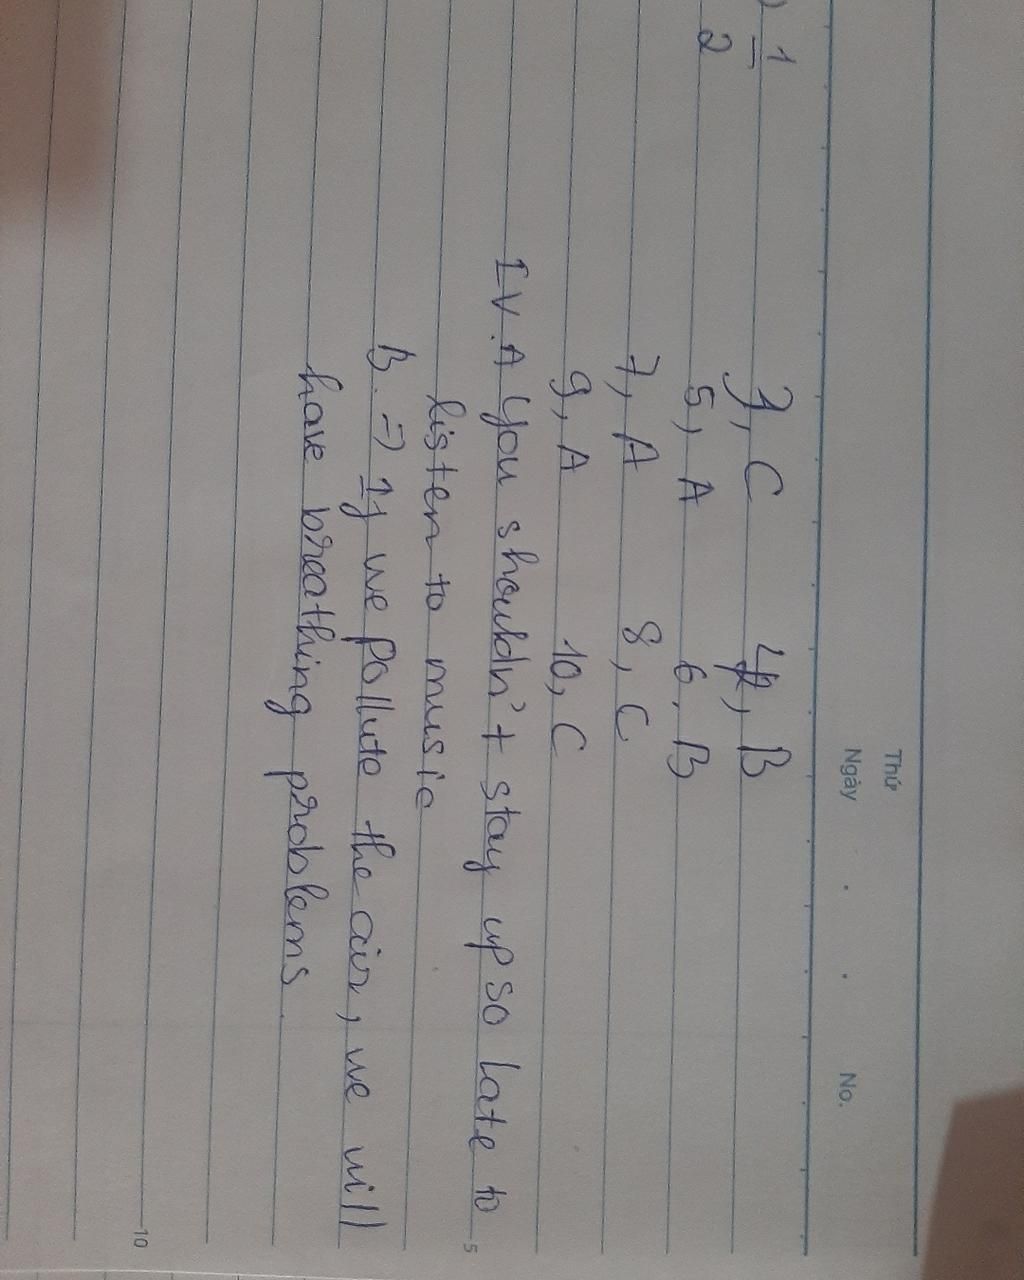 Thứ
Ngày . . No.
1
2
3, C 4, B
5, A 6, B
7, A 8, C
9, A 10, C
IV. A You shouldn't stay up so late to
listen to music
B. => If we pollute the air, we will
have breathing problems.
5
10